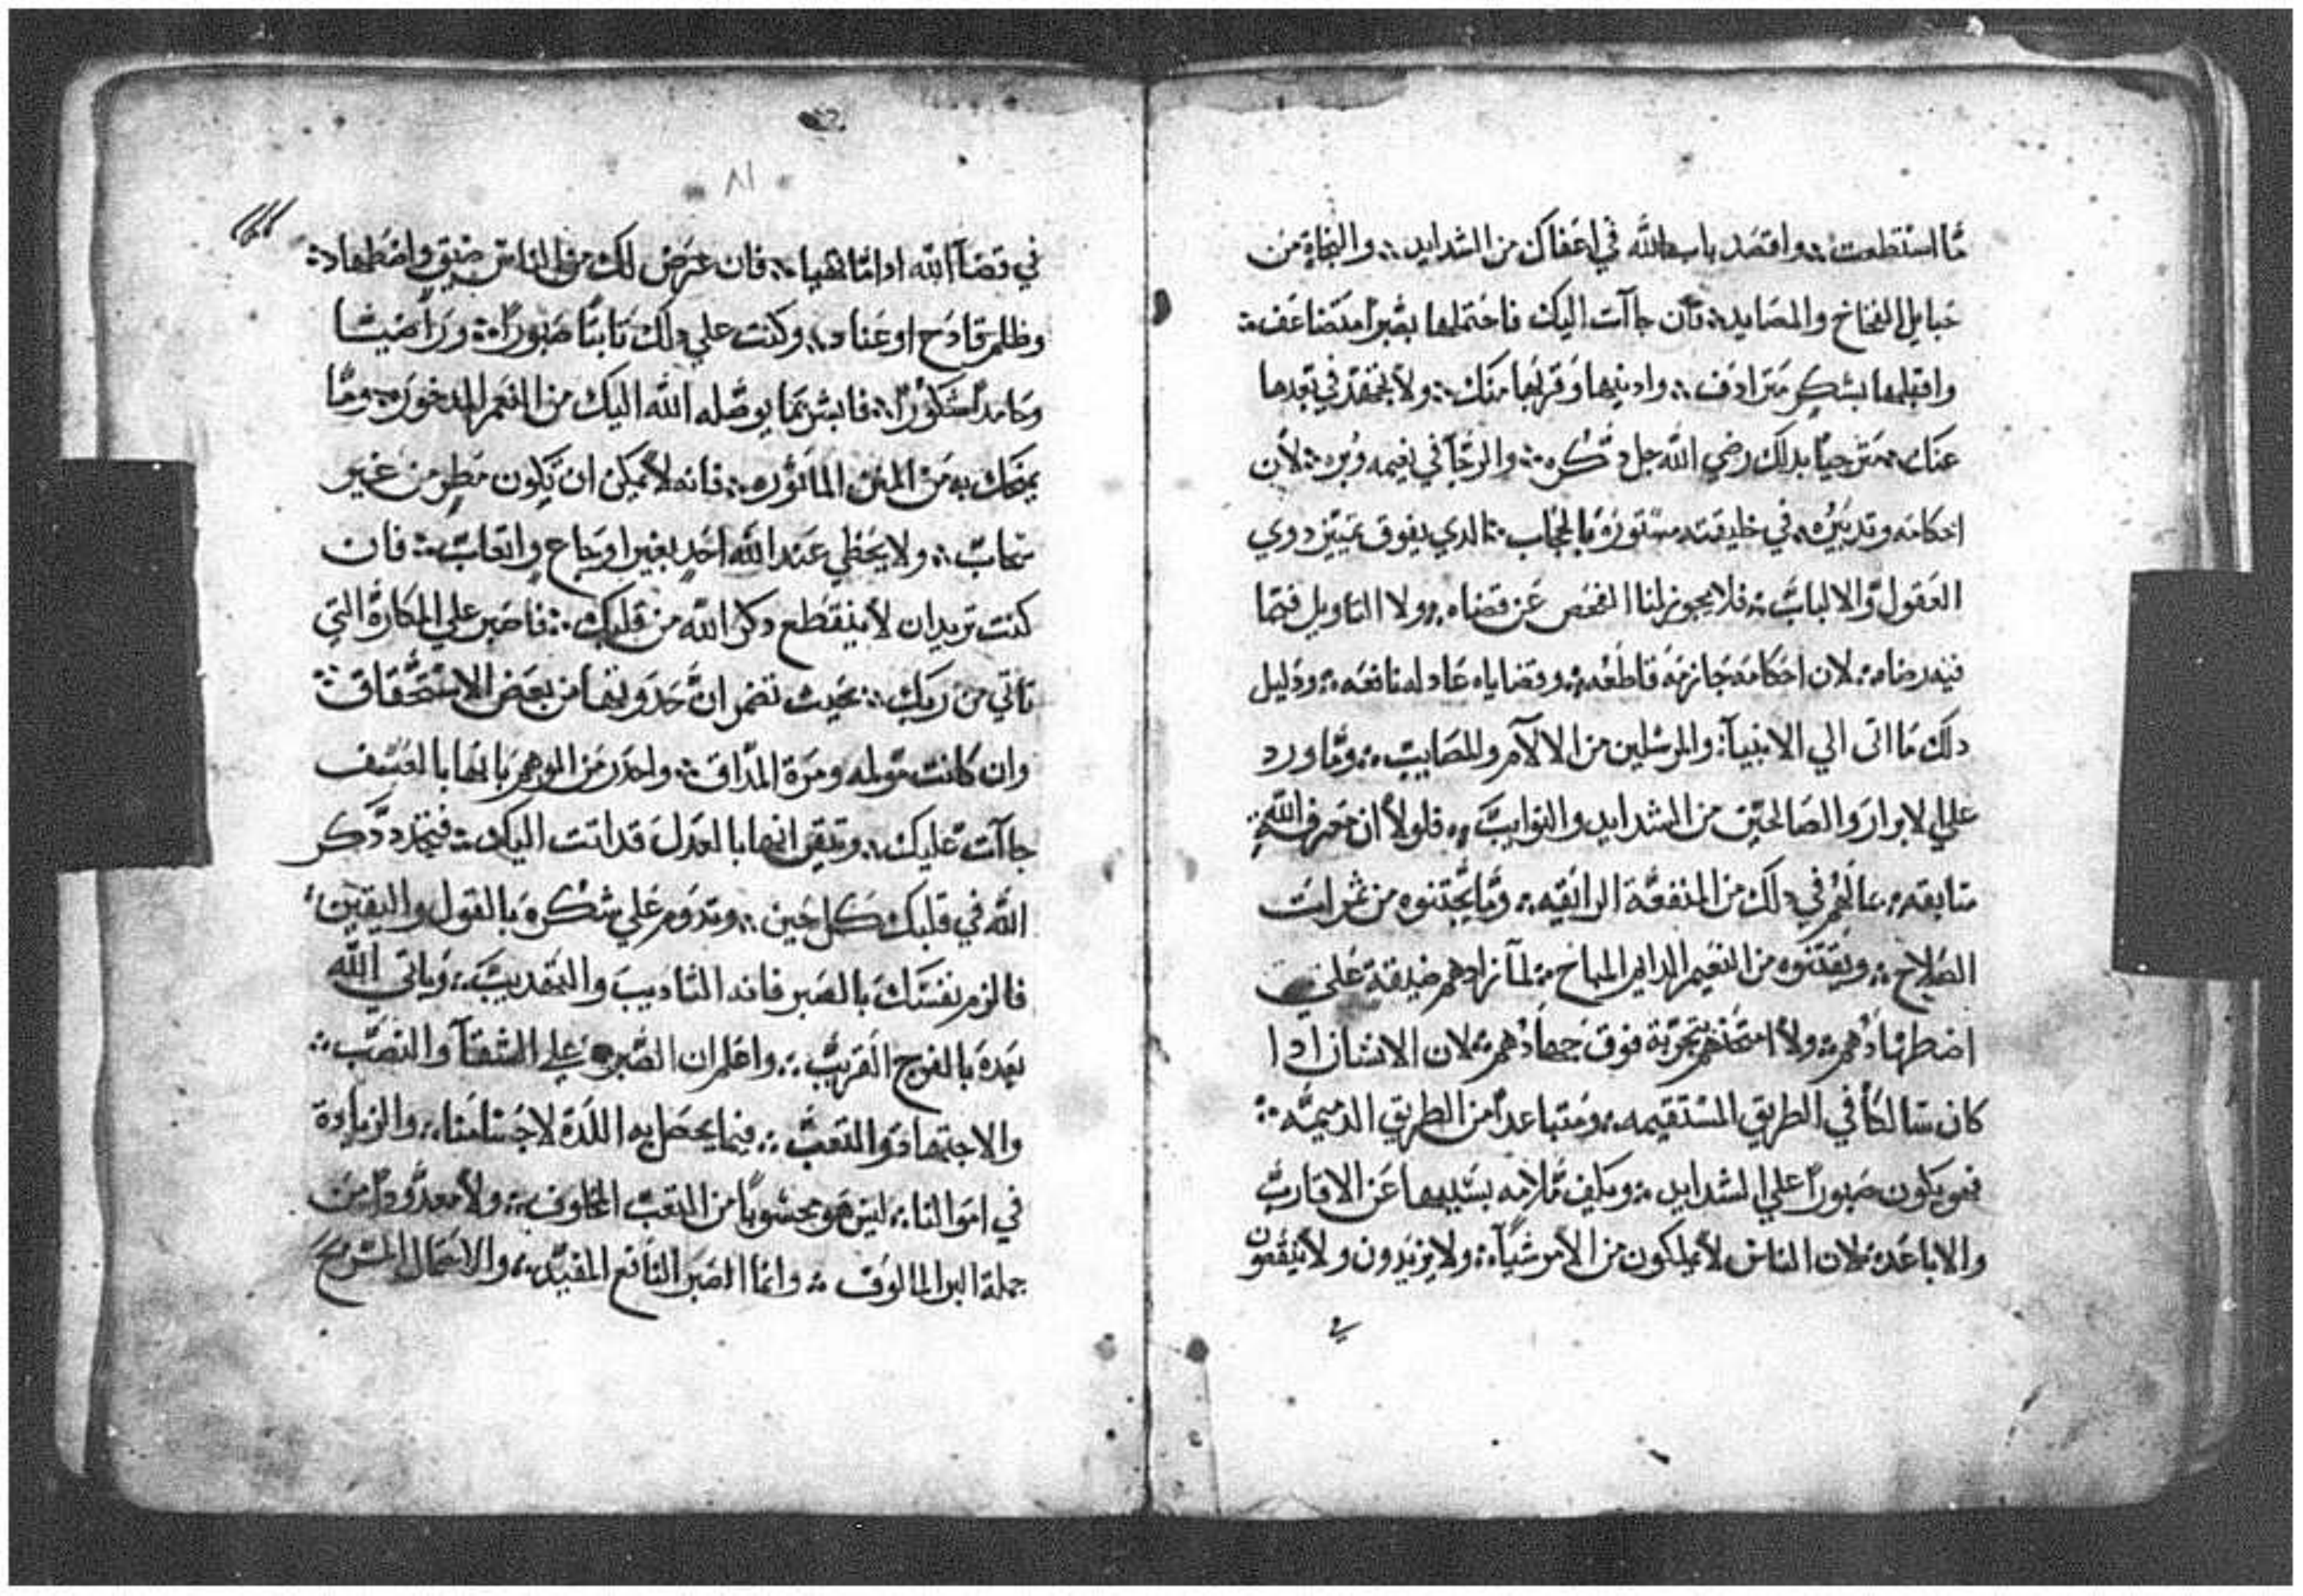 ما استنطعت ؞ واقصد باب الله في اعفاك من الشدايد ؞ والنجاة من
حبايل الفخاخ والمصايد ؞ فان جاآت اليك فاحتملها بصبرا متضاعف ؞
واقبلها بشكرٍ مترادف ؞ وادنيها وقربها منك ؞ ولا تجتهد في بعدها
عنك ؞ مترجيًا بدلك رضي الله جل دكره ؞ والرجآ في نعيمه وبره ؞ لان
احكامه وتدبيره في خليقته مستورة بالحجاب ؞ الدي يفوق تمييز دوي
العقول والالباب ؞ فلا يجوز لنا الفحص عن قضاه ؞ ولا التاويل فيما
فيه رضاه ؞ لان احكامه جازمه قاطعه ؞ وقضاياه عادله نافعه ؞ ودليل
دلك ما اتى الي الانبيآ والمرسلين من الالآم والمصايب ؞ وما ورد
علي الابرار والصالحين من الشدايد والنوايب ؞ فلولا ان معرفة الله
سابقه ؞ عالهم في دلك من المنفعة الرايقه ؞ وما يجتنوه من ثمرات
الصلاح ؞ ويقتنوه من النعيم الدايم المباح ؞ لمآ زادهم ضيقة علي
اضطهادهم ؞ ولا امتحنهم بتجربة فوق جهادهم ؞ لان الانسان ادا
كان سالكًا في الطريق المستقيمه ؞ ومتباعدًا من الطريق الدميمه ؞
فهو يكون صبورًا علي الشدايد ؞ ويكف ملامه بسببها عن الاقارب
والاباعد ؞ لان الناس لا يملكون من الامر شيآ ؞ ولا يزيدون ولا ينقصون
في
٨١
في قضآ الله ادا ما تهيا ؞ فان عرض لك من الناس ضيق واضطهاد ؞
وظلم قادح او عناد ؞ وكنت علي دلك تابتًا صبورًا ؞ وراضيًا
وحامدًا شكورًا ؞ فابشر بما يوصله الله اليك من النعم المدخوره ؞ وما
يمنحك به من المنن الماتوره ؞ فانه لا يمكن ان يكون مطر من غير
سحاب ؞ ولا يحظي عند الله احد بغير اوجاع واتعاب ؞ فان
كنت تريد ان لا ينقطع دكر الله من قلبك ؞ فاصبر علي المكاره التي
تاتي من ربك ؞ بحيث تضمر ان حدوثها من بعض الاستحقاق ؞
وان كانت مولمه ومرة المداق ؞ واحدر من الوهم بانها بالعسف
جاآت عليك ؞ وتيقن انها بالعدل قد اتت اليك ؞ فيتجدد دكر
الله في قلبك كل حين ؞ وتدوم علي شكره بالقول واليقين
فالزم نفسك بالصبر فانه التاديب والتهديب ؞ وياتي الله
بعده بالفرج القريب ؞ واعلم ان الصبر علي الشقآ والنصب ؞
والاجتهاد والتعب ؞ فيما يحصل به اللدة لاجسامنا ؞ والزيادة
في اموالنا ؞ ليس هو محسوبًا من التعب ؞ ولا معدودًا من
جملة البر المالوف ؞ وانما الصبر النافع المفيد ؞ والاحتمال